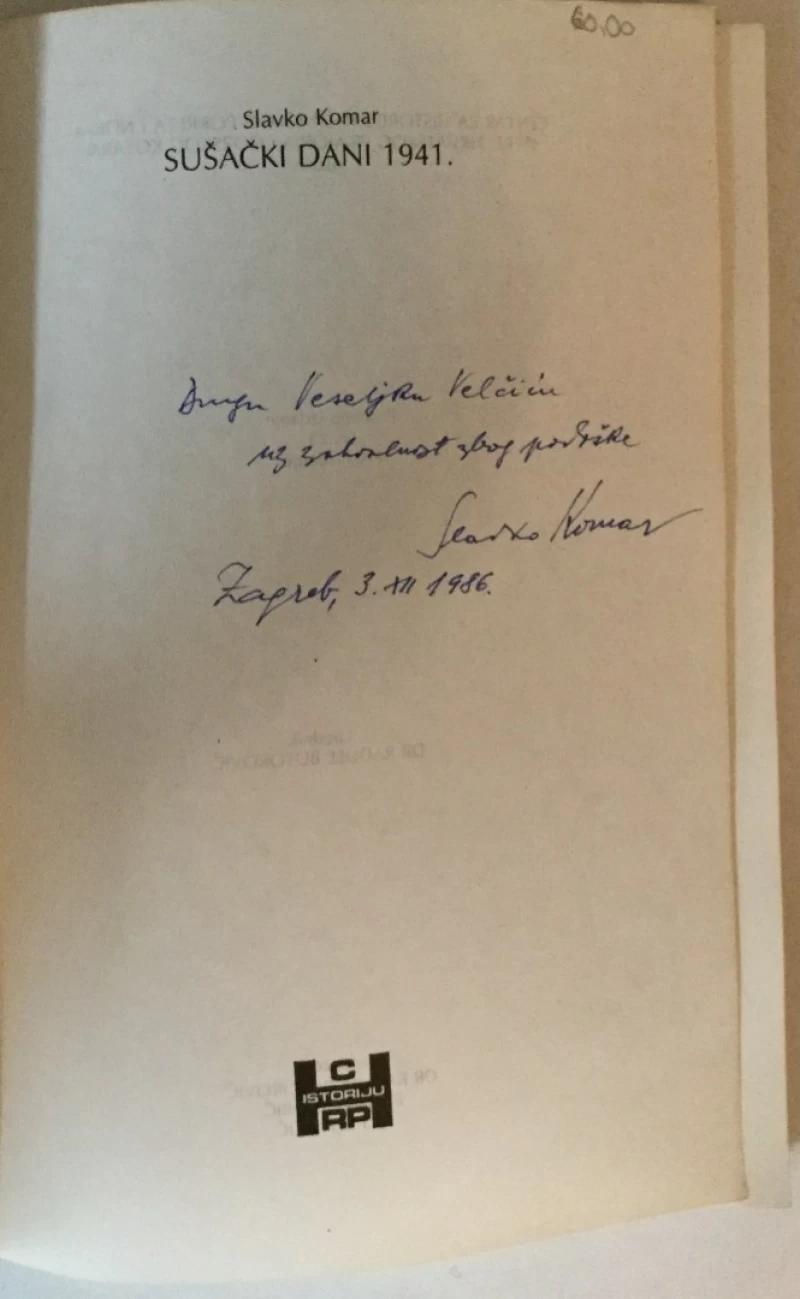 60,00
Slavko Komar
SUŠAČKI DANI 1941.
Drugu Veseljku Velčiću
uz zahvalnost zbog podrške
Slavko Komar
Zagreb, 3. XII 1986.
C
ISTORIJU
RP